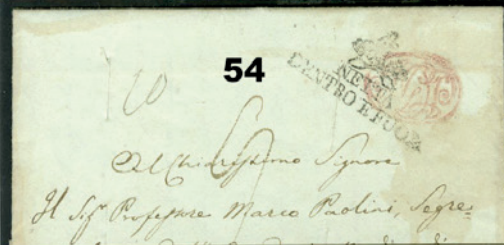 54
NETTA
DENTRO E FUORI
Al Chiarissimo Signore
Il Sig.r Professore Marco Paolini, Segre-